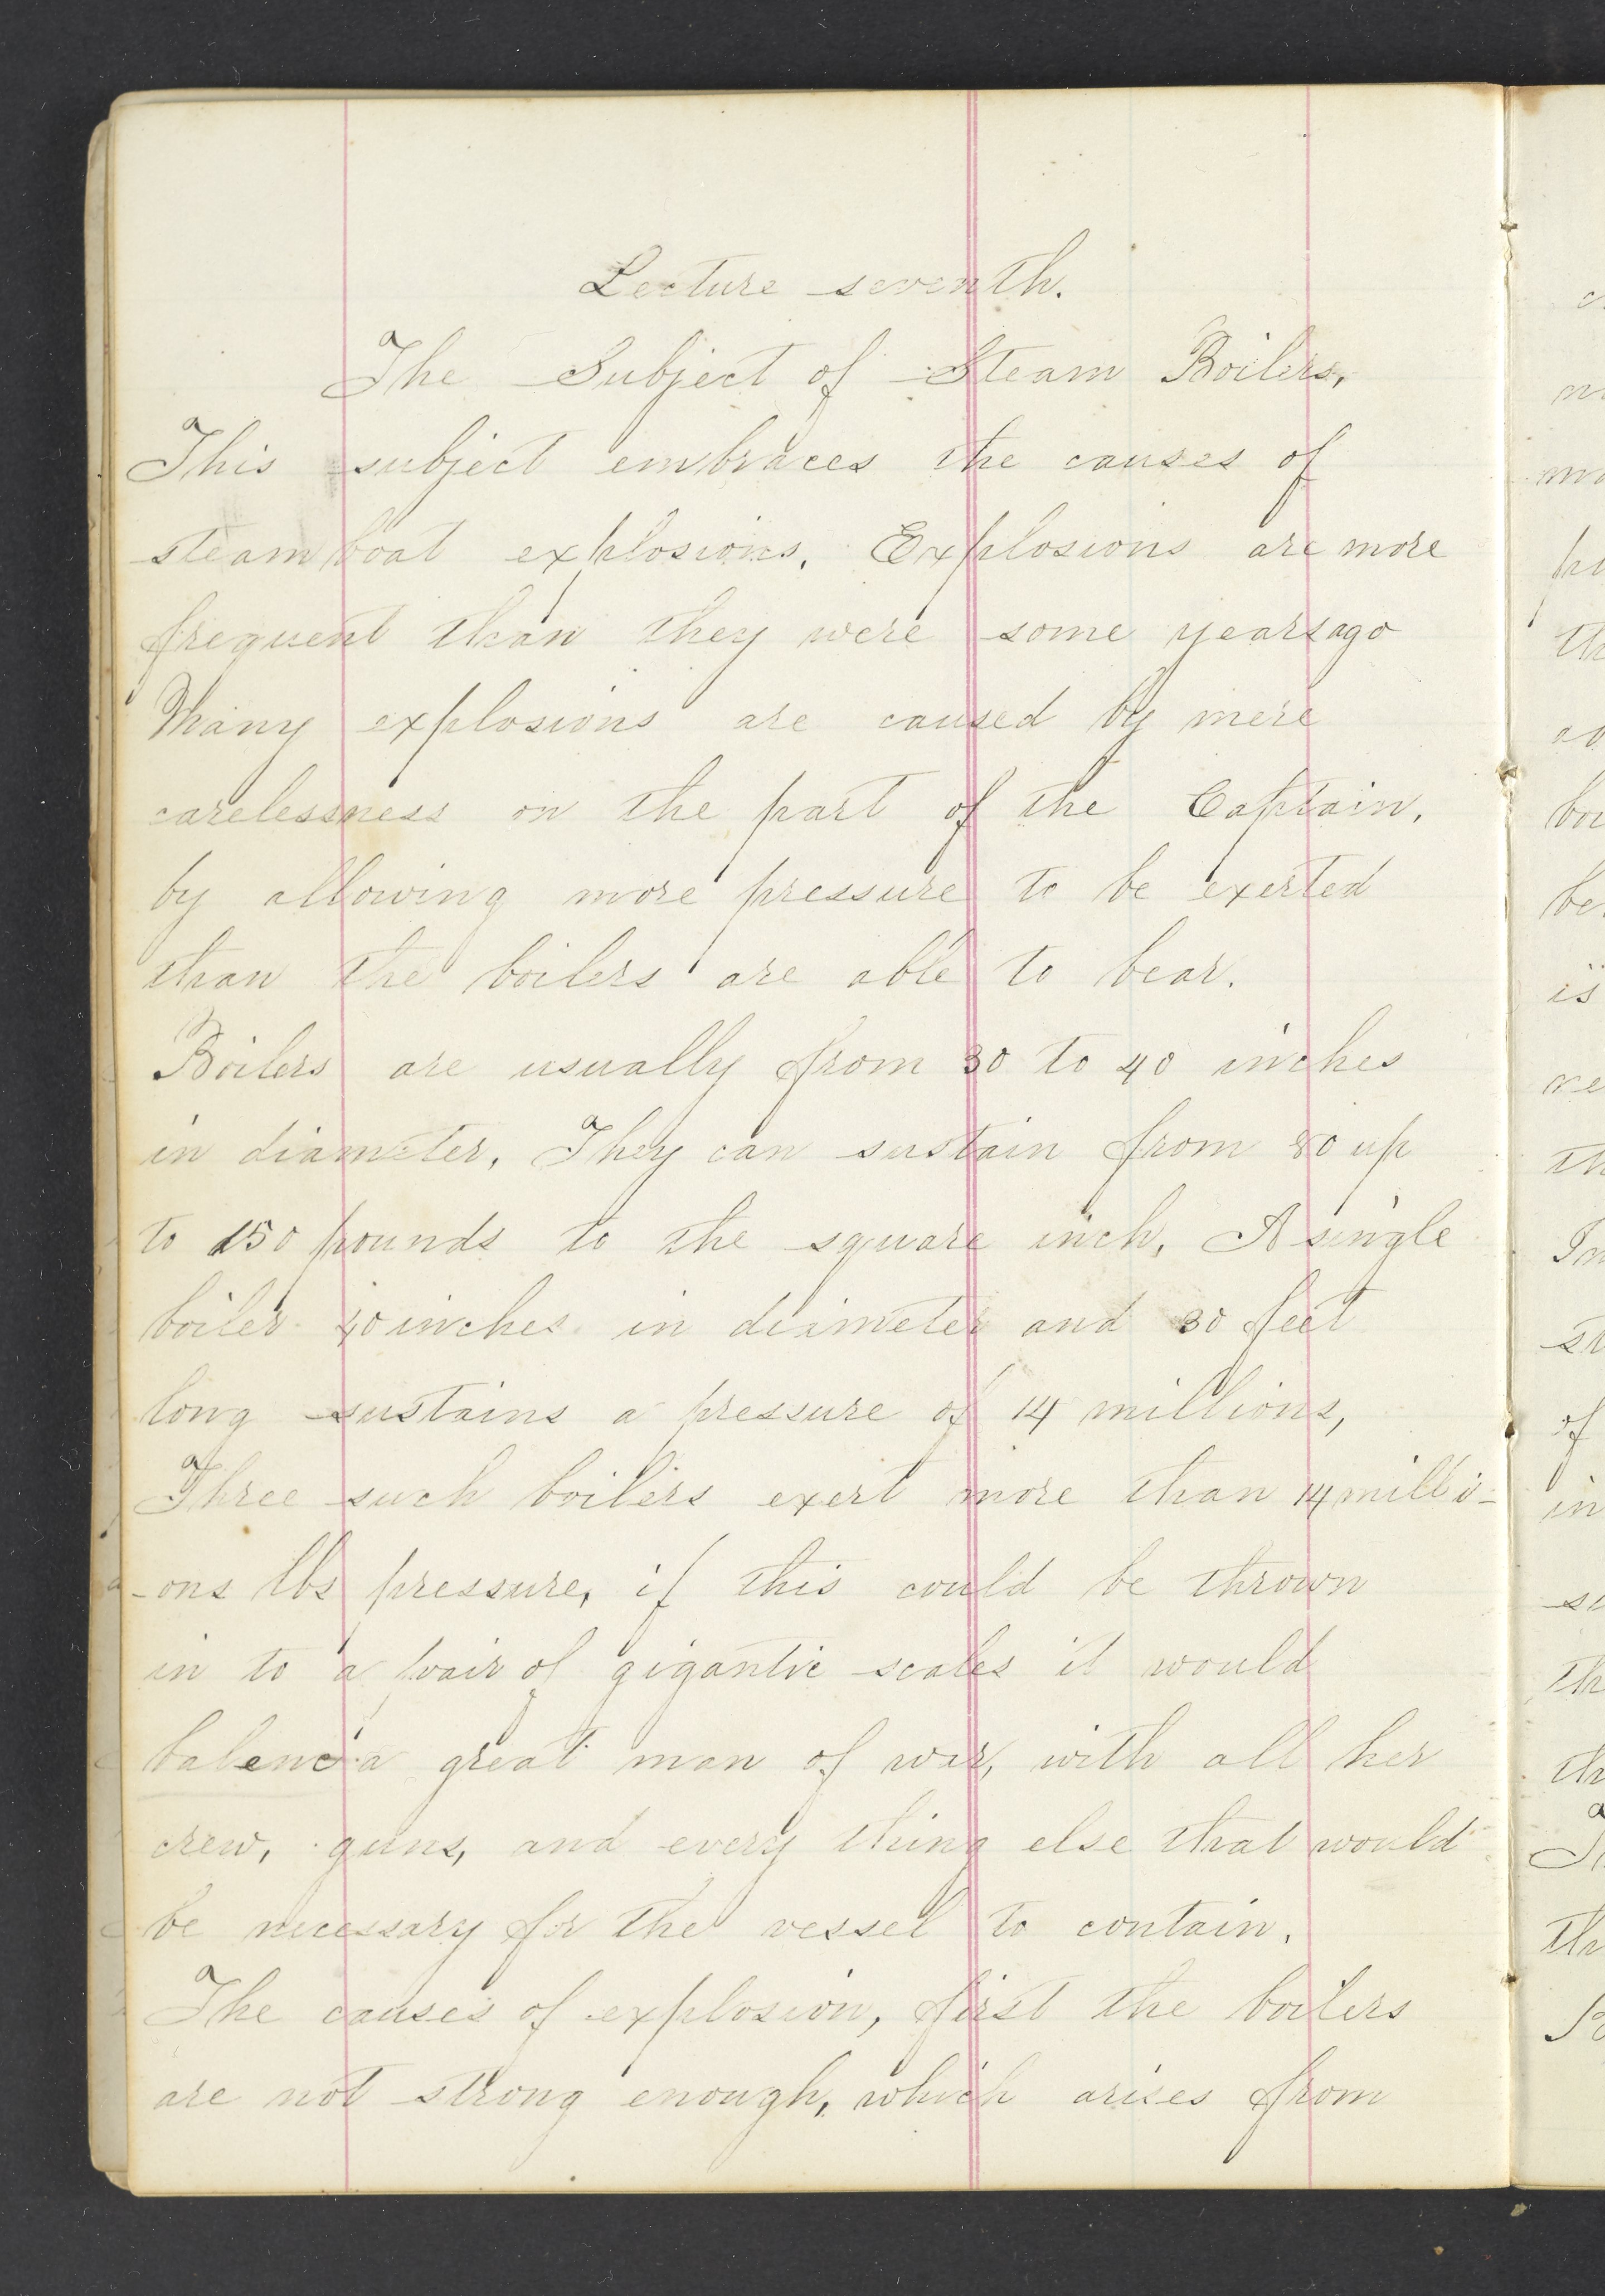 Lecture seventh.
The Subject of Steam Boilers,
This subject embraces the causes of
steam boat explosions. Explosions are more
frequent than they were some years ago
Many explosions are caused by mere
carelessness on the part of the Captain,
by allowing more pressure to be exerted
than the boilers are able to bear.
Boilers are usually from 30 to 40 inches
in diameter, They can sustain from 80 up
to 150 pounds to the square inch, A single
boiler 40 inches in diameter and 30 feet
long sustains a pressure of 14 millions,
Three such boilers exert more than 14 milli-
-ons lbs pressure, if this could be thrown
in to a pair of gigantic scales it would
balenc a great man of war, with all her
crew, guns, and every thing else that would
be necessary for the vessel to contain.
The causes of explosion, first the boilers
are not strong enough, which arises from